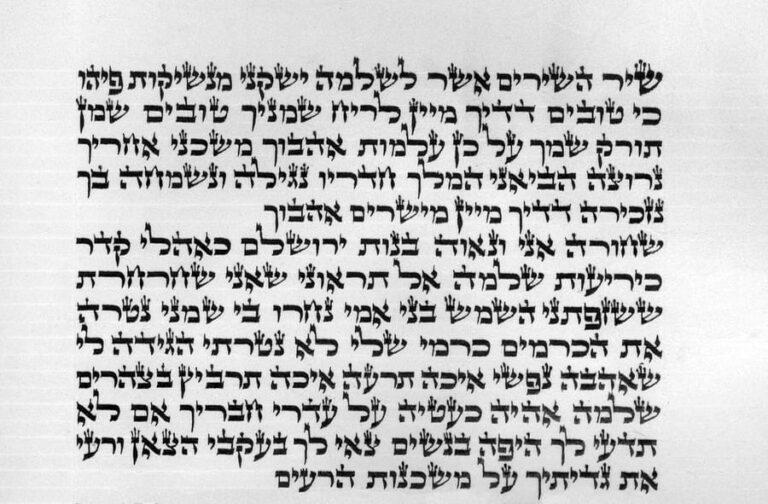 שיר השירים אשר לשלמה ישקני מנשיקות פיהו
כי טובים דדיך מיין לריח שמניך טובים שמן
תורק שמך על כן עלמות אהבוך משכני אחריך
נרוצה הביאני המלך חדריו נגילה ונשמחה בך
נזכירה דדיך מיין מישרים אהבוך
שחורה אני ונאוה בנות ירושלם כאהלי קדר
כיריעות שלמה אל תראוני שאני שחרחרת
ששזפתני השמש בני אמי נחרו בי שמני נטרה
את הכרמים כרמי שלי לא נטרתי הגידה לי
שאהבה נפשי איכה תרעה איכה תרביץ בצהרים
שלמה אהיה כעטיה על עדרי חבריך אם לא
תדעי לך היפה בנשים צאי לך בעקבי הצאן ורעי
את גדיתיך על משכנות הרעים